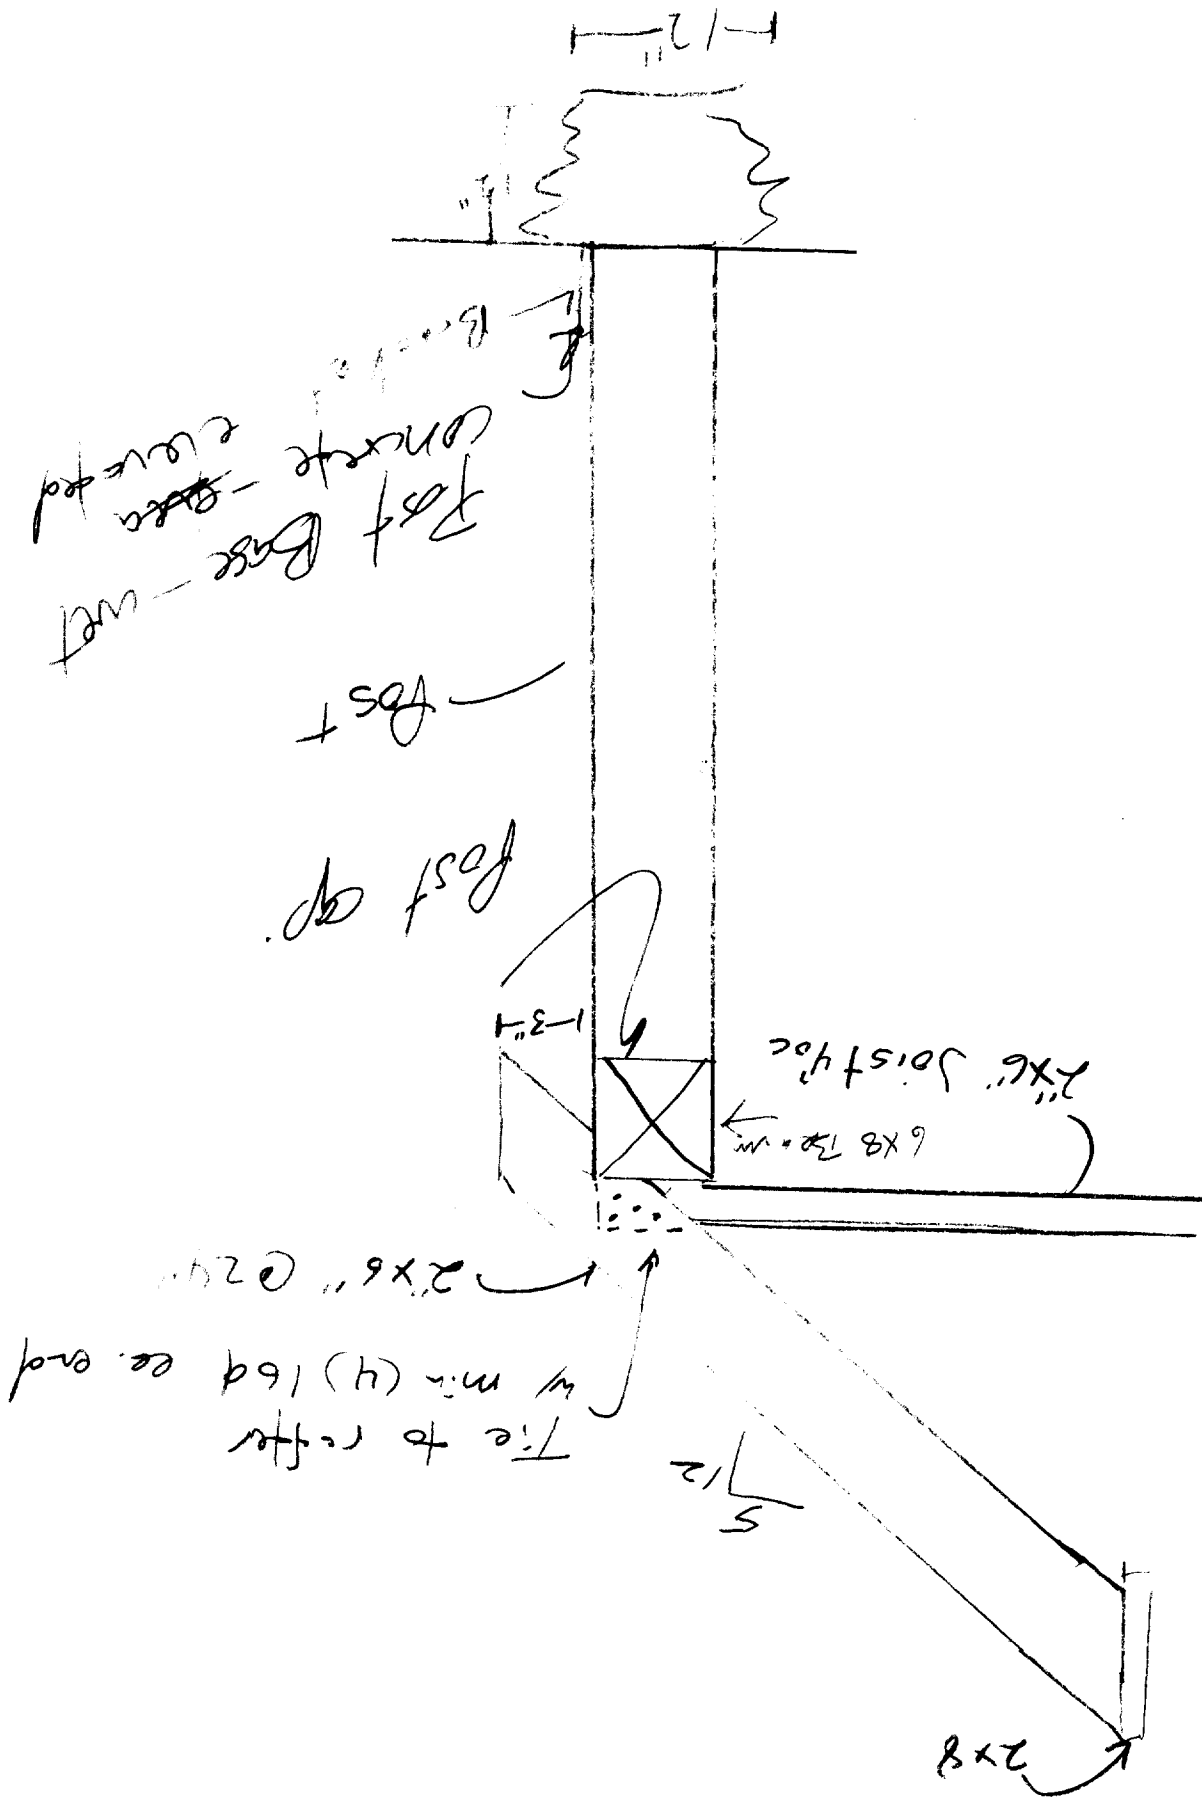 2x8
5
12
Tie to rafter
w min (4) 16d ea. end
2"x6" @24"
6x8 Beam
2"x6" Joist 4'oc
1-3"
Post cap.
Post
Post Base - wet
concrete - elevated
12"